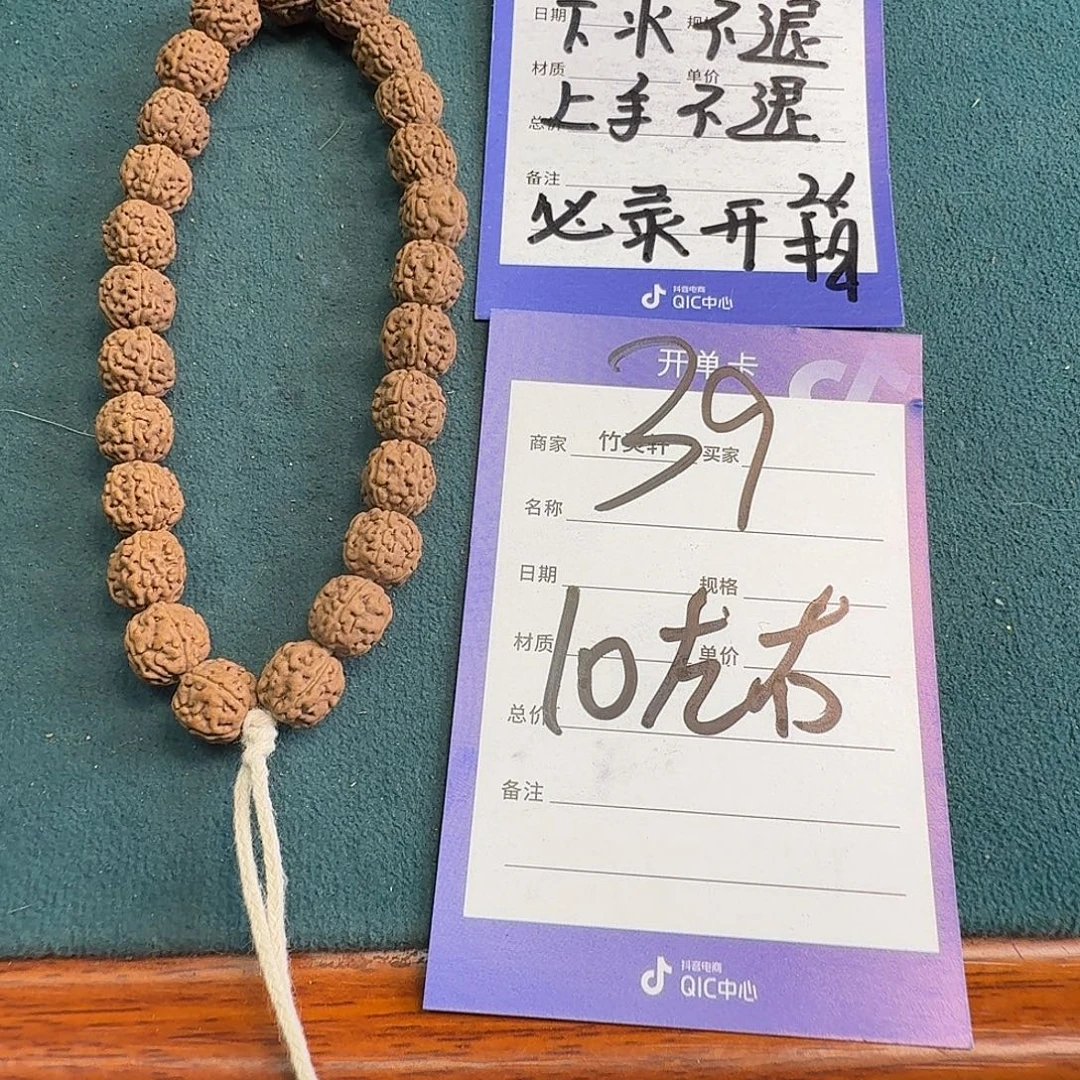 日期 规格
下水不退
材质 单价
上手不退
总价
备注
必录开箱
抖音电商
QIC中心
开单卡
39
商家 竹 轩 买家
名称
日期 规格
材质 单价
10左右
总价
备注
抖音电商
QIC中心